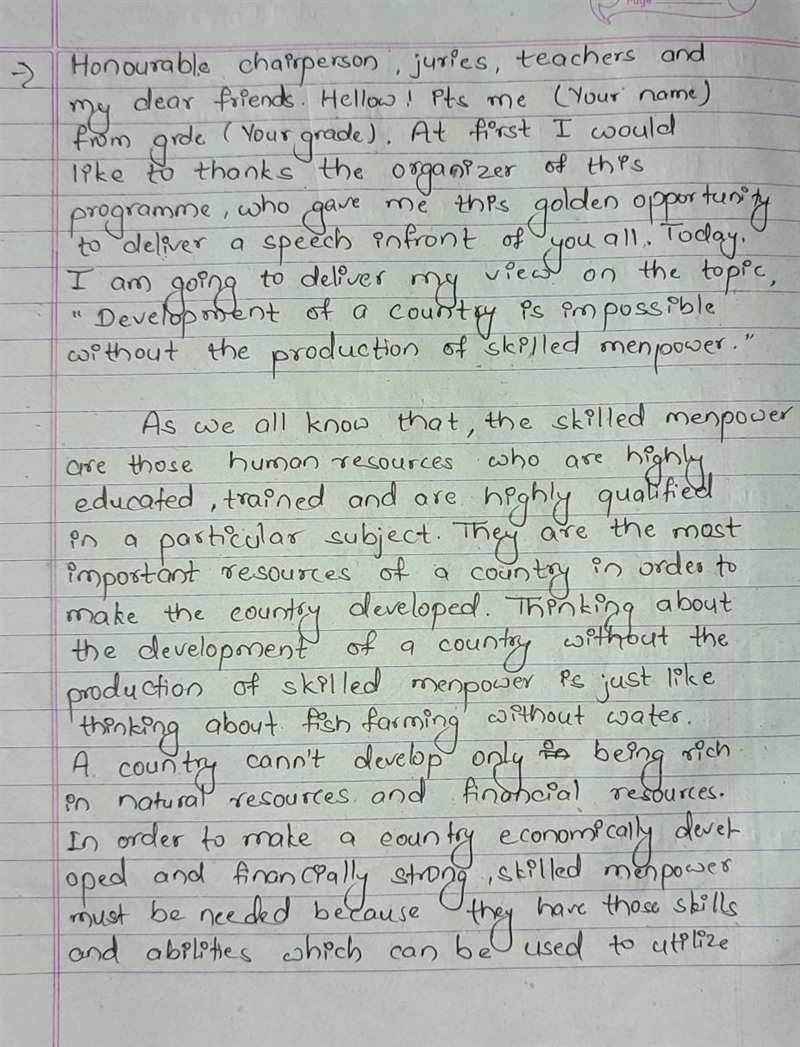 Page
→ Honourable chairperson, juries, teachers and
my dear friends. Hellow! Its me (Your name)
from grde (Your grade). At first I would
like to thanks the organizer of this
programme, who gave me this golden opportunity
to deliver a speech infront of you all. Today,
I am going to deliver my view on the topic,
"Development of a country is impossible
without the production of skilled menpower."
As we all know that, the skilled menpower
are those human resources who are highly
educated, trained and are highly qualified
in a particular subject. They are the most
important resources of a country in order to
make the country developed. Thinking about
the development of a country without the
production of skilled menpower is just like
thinking about fish farming without water.
A country cann't develop only being rich
in natural resources and financial resources.
In order to make a country economically devel-
oped and financially strong, skilled menpower
must be needed because they have those skills
and abilities which can be used to utilize